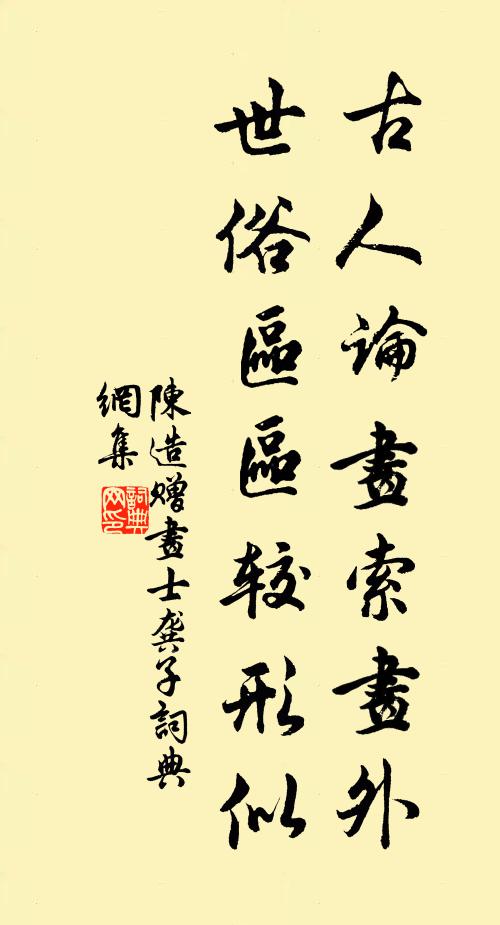 古人論畫索畫外
世俗區區較形似
陳造贈畫士龔子詞典
網集
詞典
网印